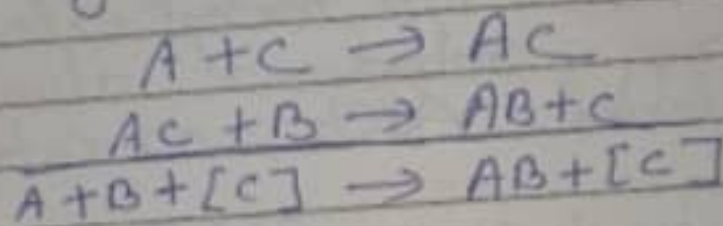 A + C → AC
AC + B → AB + C
A + B + [C] → AB + [C]